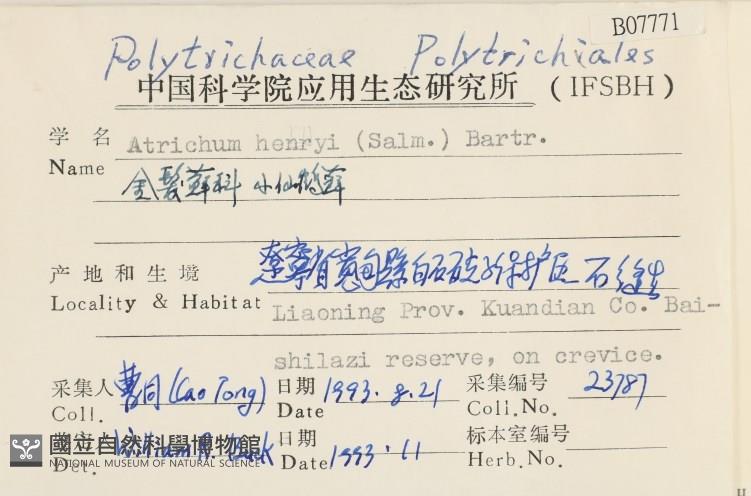 B07771
Polytrichaceae Polytrichiales
中国科学院应用生态研究所 (IFSBH)
学名 Atrichum henryi (Salm.) Bartr.
Name
金髮蘚科 小仙鶴蘚
产地和生境 遼寧省寬甸縣白石砬子保护区 石縫生
Locality & Habitat Liaoning Prov. Kuandian Co. Bai-
shilazi reserve, on crevice.
采集人 曹同 (Cao Tong) 日期 1993.8.21 采集编号 23787
Coll. Date Coll.No.
國立自然科學博物館 日期 标本室编号
NATIONAL MUSEUM OF NATURAL SCIENCE
Det. Date 1993.11 Herb.No.